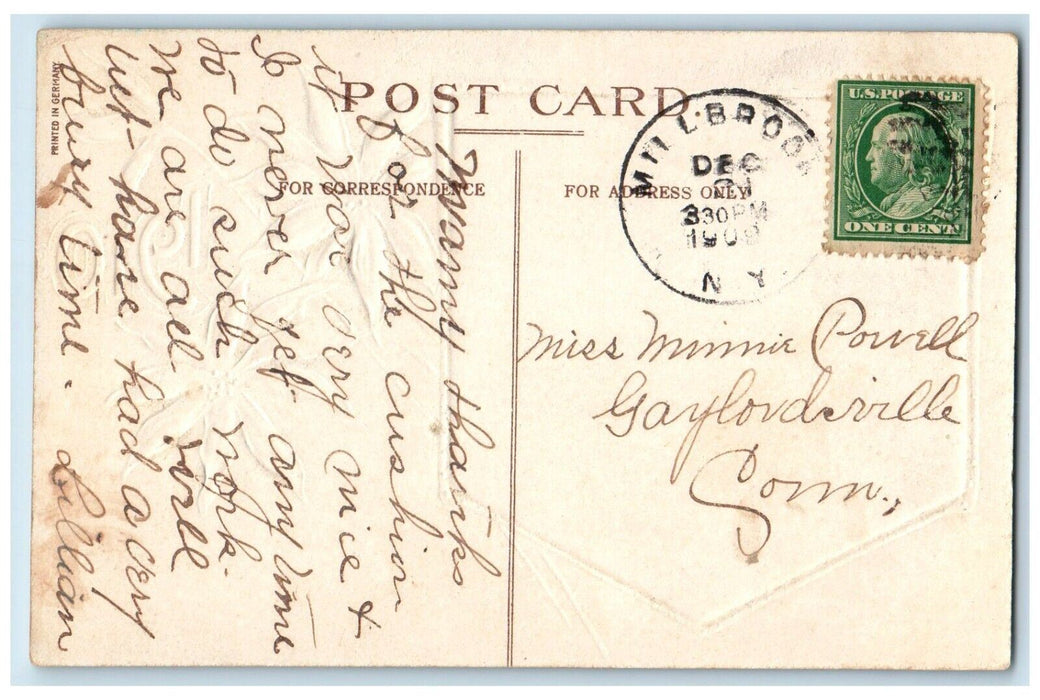 POST CARD.
FOR CORRESPONDENCE
FOR ADDRESS ONLY
PRINTED IN GERMANY
U.S. POSTAGE
ONE CENT
MILLBROOK
DEC
330PM
1909
N Y
Miss Minnie Powell
Gaylordsville
Conn.,
Many thanks
for the cushion
it was very nice &
I never get any time
to do such work.
We are all well
but have had a very
busy time.
Lillian